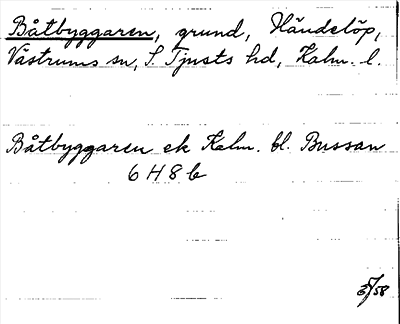 Båtbyggaren, grund, Händelöp,
Västrums sn, S. Tjusts hd, Kalm. l.
Båtbyggaren ek Kalm. bl. Bussan
6 H 8 b
/58